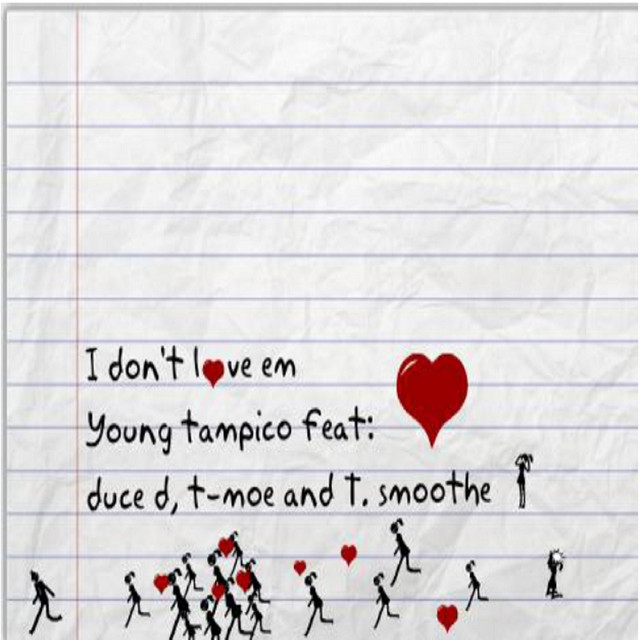 I don't love em
Young tampico feat:
duce d, t-moe and T. smoothe